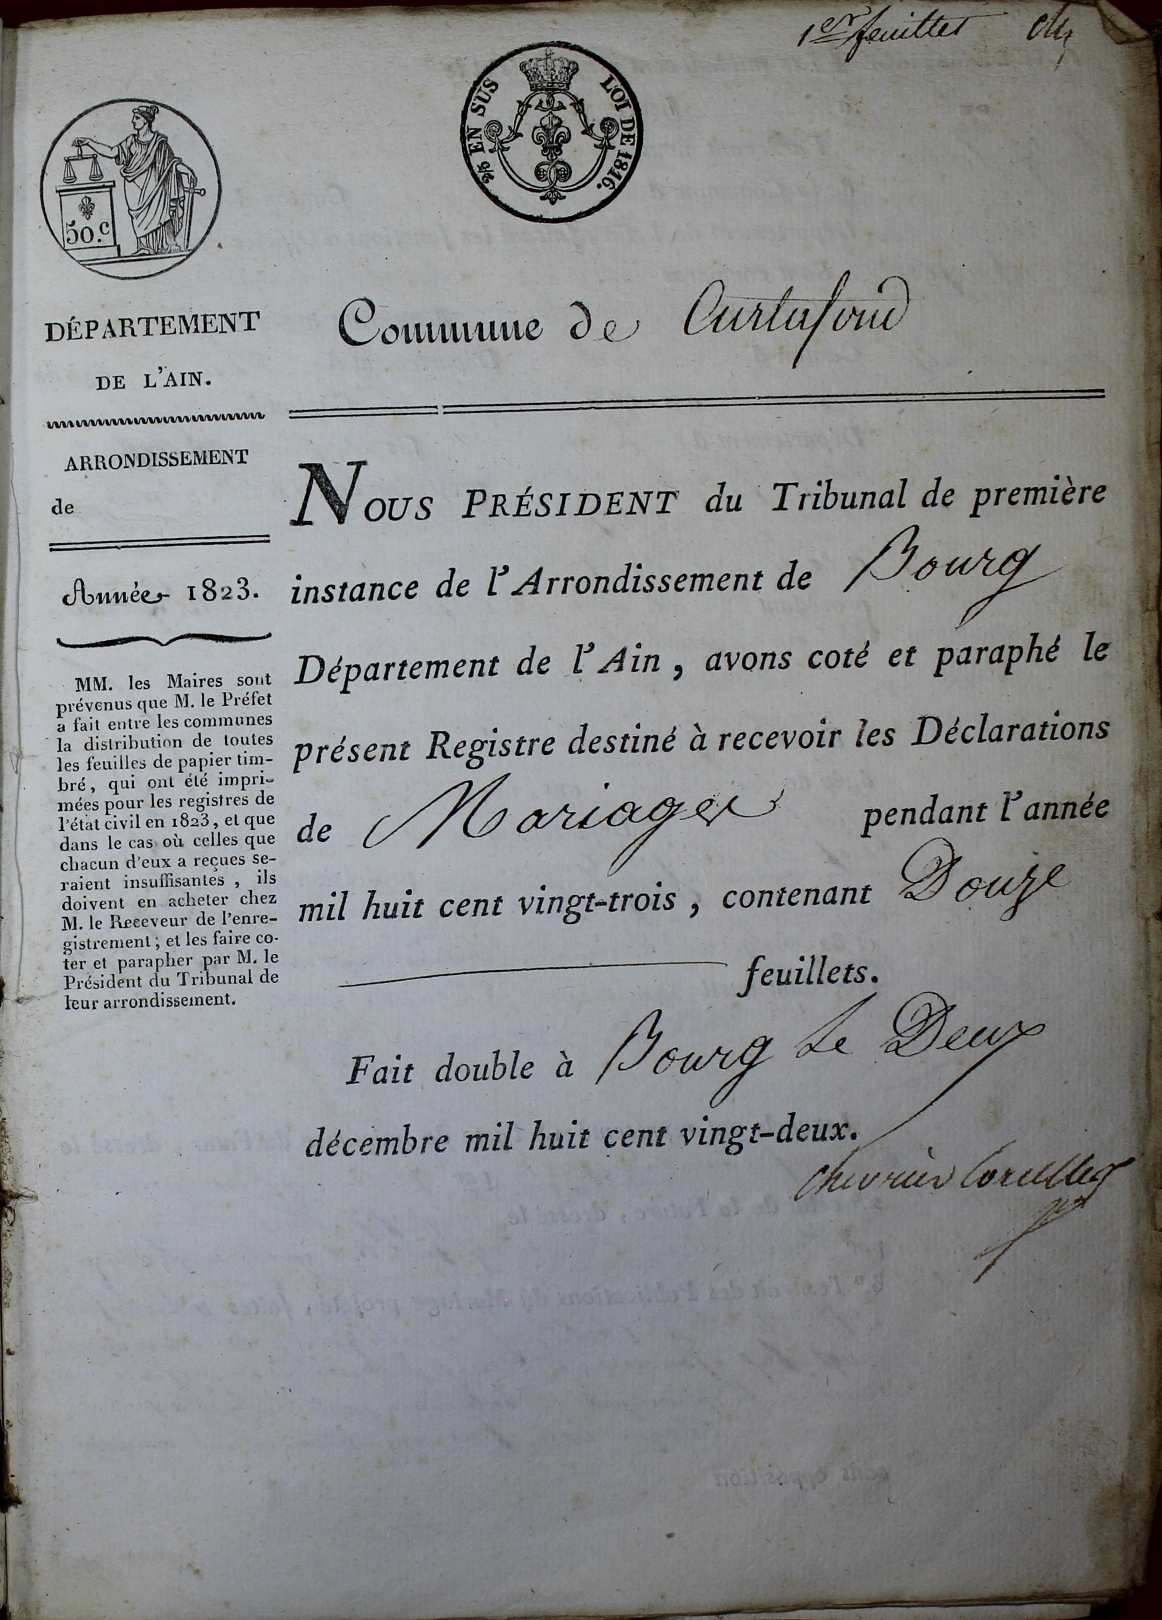 1er feuillet
50.c
2/5 EN SUS LOI DE 1816.
DÉPARTEMENT
DE L'AIN.
ARRONDISSEMENT
de
Année 1823.
MM. les Maires sont
prévenus que M. le Préfet
a fait entre les communes
la distribution de toutes
les feuilles de papier tim-
bré, qui ont été impri-
mées pour les registres de
l'état civil en 1823, et que
dans le cas où celles que
chacun d'eux a reçues se-
raient insuffisantes, ils
doivent en acheter chez
M. le Receveur de l'enre-
gistrement; et les faire co-
ter et parapher par M. le
Président du Tribunal de
leur arrondissement.
Commune de Curtafond
NOUS PRÉSIDENT du Tribunal de première
instance de l'Arrondissement de Bourg
Département de l'Ain, avons coté et paraphé le
présent Registre destiné à recevoir les Déclarations
de Mariages pendant l'année
mil huit cent vingt-trois, contenant Douze
feuillets.
Fait double à Bourg le Deux
décembre mil huit cent vingt-deux.